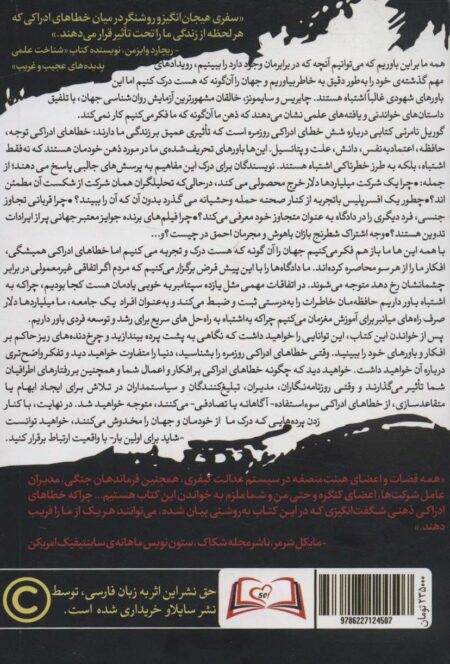 «سفری هیجان‌انگیز و روشنگر در میان خطاهای ادراکی که
هر لحظه از زندگی ما را تحت تأثیر قرار می‌دهند.»
- ریچارد وایزمن، نویسنده کتاب «شناخت علمی
پدیده‌های عجیب و غریب»
همه ما بر این باوریم که می‌توانیم آنچه که در برابرمان وجود دارد را ببینیم، رویدادهای
مهم گذشته‌ی خود را به‌طور دقیق به خاطر بیاوریم و جهان را آن‌گونه که هست درک کنیم اما این
باورهای شهودی غالباً اشتباه هستند. چابریس و سایمونز، خالقان مشهورترین آزمایش روان‌شناسی جهان، با تلفیق
داستان‌های خواندنی و یافته‌های علمی نشان می‌دهند که ذهن ما آن‌گونه که ما فکر می‌کنیم کار نمی‌کند.
گوریل نامرئی کتابی درباره شش خطای ادراکی روزمره است که تأثیری عمیق بر زندگی ما دارند: خطاهای ادراکی توجه،
حافظه، اعتمادبه‌نفس، دانش، علت و پتانسیل. این‌ها باورهای تحریف‌شده‌ی ما در مورد ذهن خودمان هستند که نه فقط
اشتباه، بلکه به طرز خطرناکی اشتباه هستند. نویسندگان برای درک این مفاهیم به پرسش‌های جالبی پاسخ می‌دهند؛ از
جمله: • چرا یک شرکت میلیاردها دلار خرج محصولی می‌کند، درحالی‌که تحلیلگران همان شرکت از شکست آن مطمئن‌اند؟
• چطور یک افسر پلیس باتجربه از کنار صحنه حمله وحشیانه می‌گذرد بدون آن که آن را ببیند؟ • چرا قربانی تجاوز
جنسی، فرد دیگری را در دادگاه به عنوان متجاوز خود معرفی می‌کند؟ • چرا فیلم‌های برنده جوایز معتبر جهانی پر از ایرادات
تدوین هستند؟ • وجه اشتراک شطرنج بازان باهوش و مجرمان احمق در چیست؟ و...
با همه این‌ها ما باز هم فکر می‌کنیم جهان را آن گونه که هست درک و تجربه می کنیم اما خطاهای ادراکی همیشگی،
افکار ما را از هر سو محاصره کرده‌اند. ما دادگاه‌ها را با این پیش فرض برگزار می‌کنیم که مردم اگر اتفاقی غیرمعمولی در برابر
چشمانشان رخ دهد متوجه می‌شوند. در اتفاقات مهمی مثل یازده سپتامبر به خوبی یادمان هست کجا بودیم، چراکه به
اشتباه باور داریم حافظه‌مان خاطرات را به‌درستی ثبت و ضبط می‌کند و به‌عنوان افراد یک جامعه، ما میلیاردها دلار
صرف راه‌های میانبر برای آموزش مغزمان می‌کنیم چراکه به‌اشتباه به راه‌حل های سریع برای رشد و توسعه فردی باور داریم.
پس از خواندن این کتاب، این توانایی را خواهید داشت که نگاهی به پشت پرده بیندازید و چرخ‌دنده‌های ریز حاکم بر
افکار و باورهای خود را ببینید. وقتی خطاهای ادراکی روزمره را بشناسید، دنیا را متفاوت خواهید دید و تفکر واضح‌تری
درباره آن خواهید داشت. خواهید دید که چگونه خطاهای ادراکی بر افکار و اعمال شما و همچنین بر رفتارهای اطرافیان
شما تأثیر می‌گذارند و وقتی روزنامه‌نگاران، مدیران، تبلیغ‌کنندگان و سیاستمداران در تلاش برای ایجاد ابهام یا
متقاعدسازی، از خطاهای ادراکی سوءاستفاده -آگاهانه یا تصادفی- می‌کنند، متوجه خواهید شد. در نهایت، با کنار
زدن پرده‌هایی که درک ما از خودمان و جهان را مخدوش می‌کنند، خواهید توانست
-شاید برای اولین بار- با واقعیت ارتباط برقرار کنید.
«همه قضات و اعضای هیئت‌منصفه در سیستم عدالت کیفری، همچنین فرماندهان جنگی، مدیران
عامل شرکت‌ها، اعضای کنگره و حتی من و شما ملزم به خواندن این کتاب هستیم... چراکه خطاهای
ادراکی ذهنی شگفت‌انگیزی که در این کتاب به‌روشنی بیان شده، می‌توانند هر یک از ما را فریب
دهند.»
- مایکل شرمر، ناشر مجله شکاک، ستون نویس ماهانه‌ی ساینتیفیک امریکن
حق نشر این اثر به زبان فارسی، توسط
نشر سایلاو خریداری شده است.
©
۲۳۵۰۰۰ تومان
9786227124507